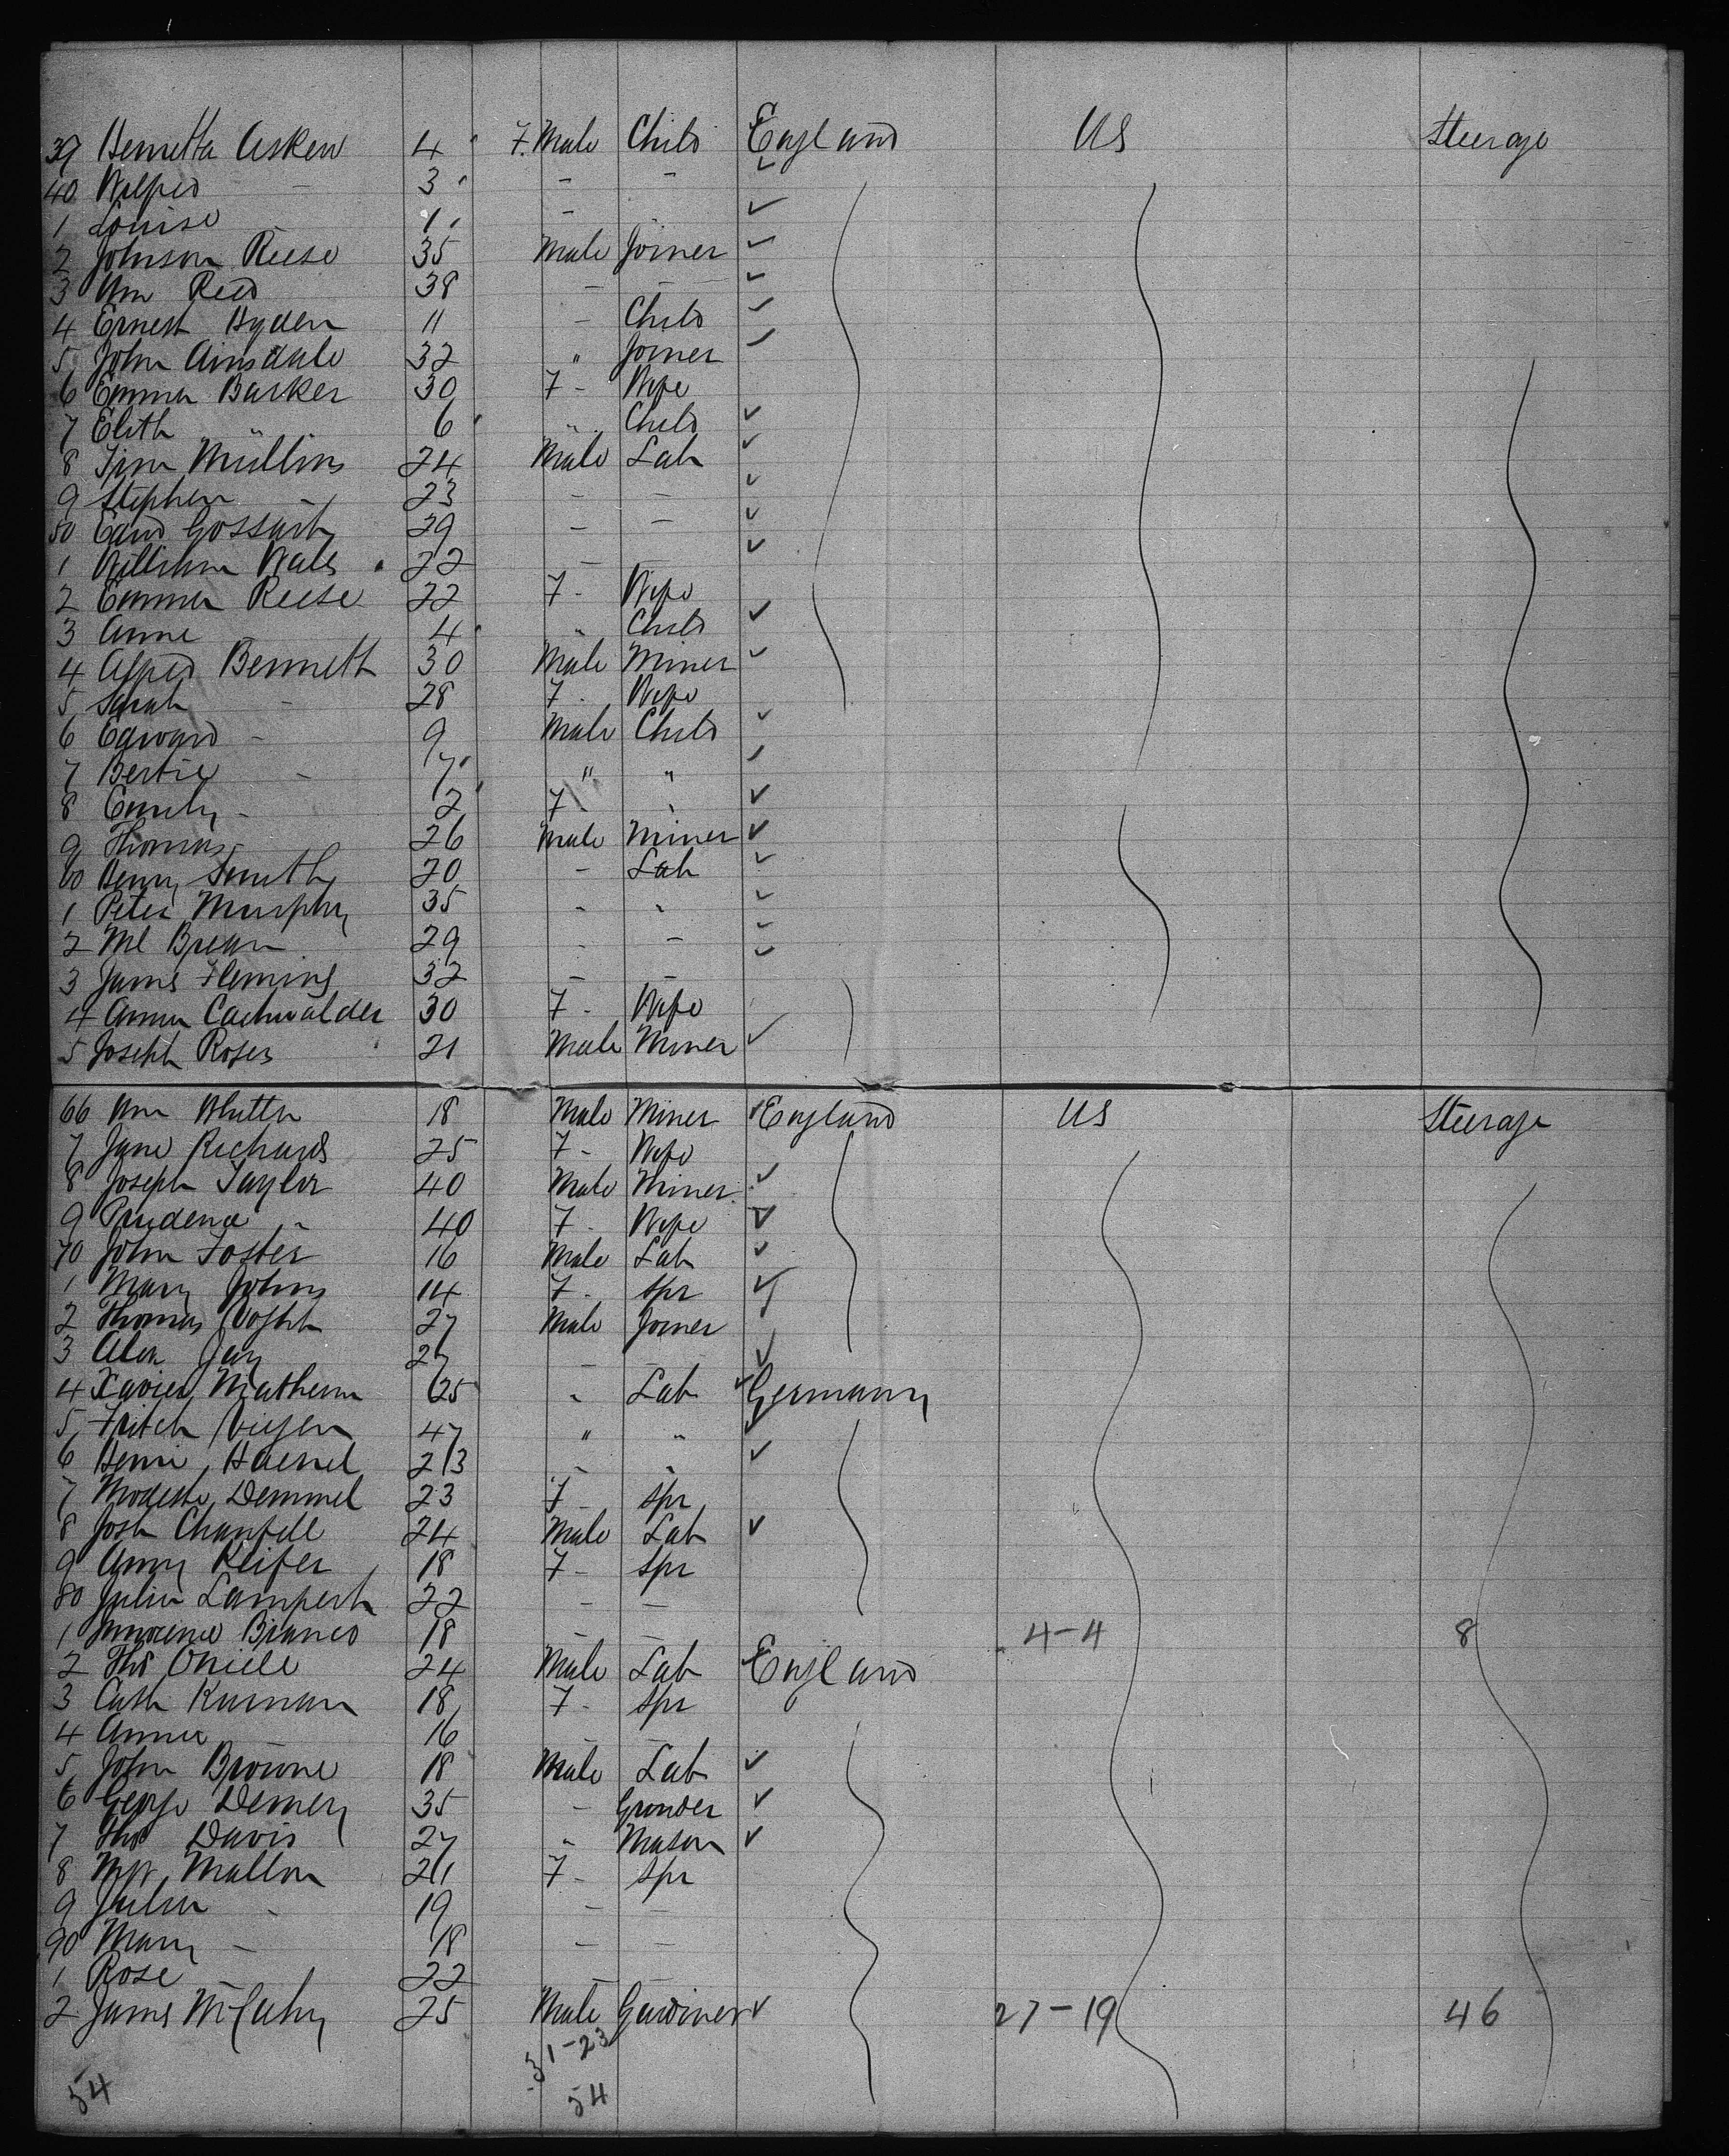 39 Henrietta Asken 4 F. Male Child England US Steerage
40 Wilfred - 3 - -
1 Louise 1 -
2 Johnson Reese 35 Male Joiner
3 Wm Reed 38 - -
4 Ernest Hyden 11 - Child
5 John Ainsdale 32 " Joiner
6 Emma Barker 30 F - Wife
7 Edith " 6 " Child
8 Tim Mullins 24 Male Lab
9 Stephen - 23 - -
50 Edwd Gossart 29 - -
1 William Walls 22 - -
2 Emma Reese 22 F - Wife
3 Anne 4 " Child
4 Alfred Bennett 30 Male Miner
5 Sarah - 28 F - Wife
6 Edward - 9 Male Child
7 Bertie - 7 " "
8 Emily - 2 F - "
9 Thomas - 26 Male Miner
60 Henry Smith 20 - Lab
1 Peter Murphy 35 - "
2 Ml Brean 29 - -
3 James Fleming 32 - -
4 Anna Cadwalder 30 F - Wife
5 Joseph Rofes 21 Male Miner
66 Wm 18 Male Miner England US Steerage
7 Jane Richards 25 F - Wife
8 Joseph Taylor 40 Male Miner
9 Prudence " 40 F - Wife
70 John Foster 16 Male Lab
1 Mary Johns 14 F - Spr
2 Thomas 27 Male Joiner
3 Alex Jay 27 - -
4 Xavier Mathern 25 " Lab Germany
5 Fritch 47 " "
6 Henri Haenel 23 " "
7 Modeste Demmel 23 F - Spr
8 Josh Chanfell 24 Male Lab
9 Amy Keifer 18 F - Spr
80 Julia Lampert 22 - -
1 Innocence Bianco 18 - - 4-4 8
2 Thos Oniell 24 Male Lab England
3 Cath Kurnan 18 F - Spr
4 Annie 16 - -
5 John Browne 18 Male Lab
6 George Demery 35 - Grinder
7 Thos Davis 27 " Mason
8 Mgt Mallon 21 F - Spr
9 Julia - 19 - -
90 Mary - 18 - -
1 Rose - 22 - -
2 James McCahy 25 Male Gardiner 27-19 46
31-23
54 54